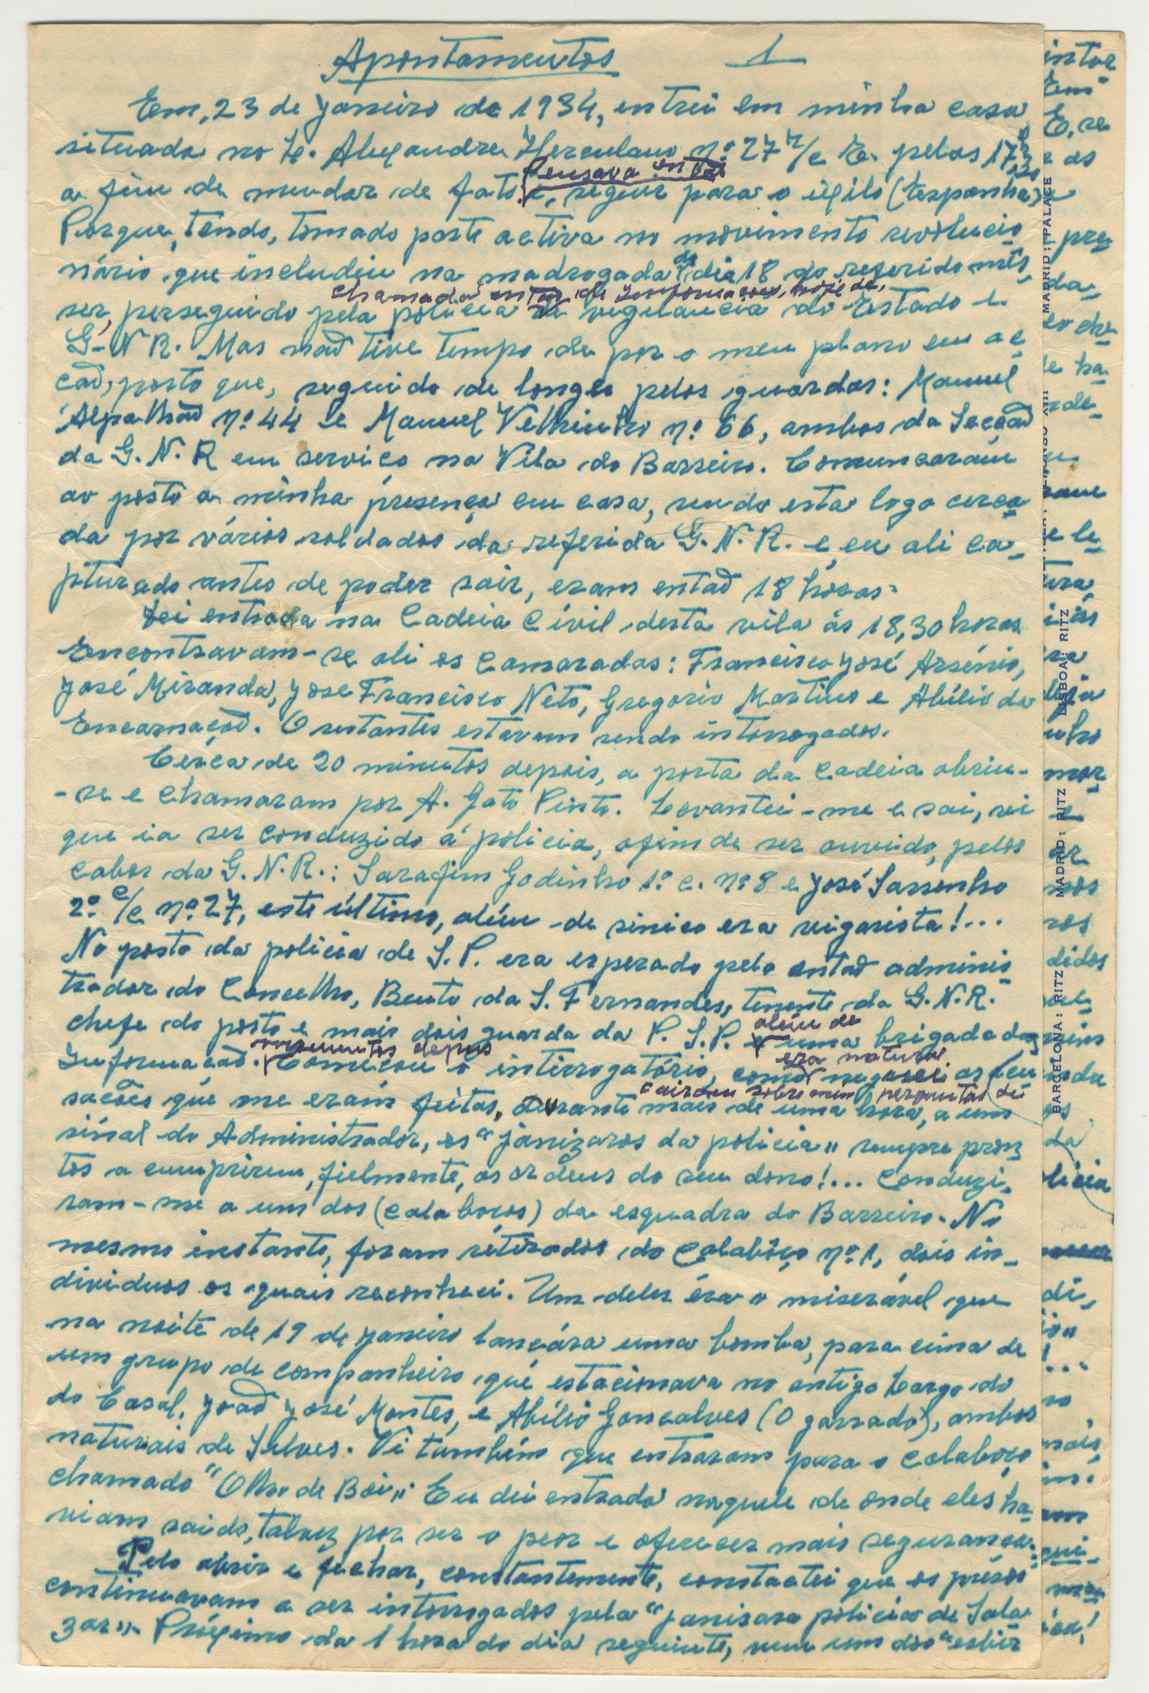 Apontamentos 1
Em, 23 de janeiro de 1934, entrei em minha casa
situada na R. Alexandre Herculano nº 27 r/c E. pelas 17,30
pensava então
a fim de mudar de fato e, seguir para o exílio (Espanha)
Porque, tendo, tomado parte activa no movimento revolucio
nário que includiu na madrogada do dia 18 do referido mês
chamada então de Informações, hoje de,
ser, perseguido pela policia de vigilancia do Estado e
G. N R. Mas não tive tempo de por o meu plano em ac
ção, posto que, seguido de longe pelos guardas: Manuel
Alpalhão nº 44 e Manuel Velhinho nº 66, ambos da Secção
da G. N. R em serviço na Vila do Barreiro. Comunicaram
ao posto a minha presença em casa, sendo esta logo cerca
da por vários soldados da referida G. N. R. e eu ali ca-
pturado antes de poder sair, eram então 18 horas.
Dei entrada na Cadeia Civil desta vila ás 18,30 horas
Encontravam-se ali os Camaradas: Francisco José Arsénio,
José Miranda, José Francisco Neto, Gregorio Martins e Abílio da
Encarnação. O restantes estavam sendo intorrogados.
Cerca de 20 minutos depois, a porta da Cadeia abriu-
-se e chamaram por A. Gato Pinto. Levantei-me e sai, vi
que ia ser conduzido á policia, afim de ser ouvido, pelos
cabos da G. N. R.: Sarafim Godinho 1º c. nº 8 e José Sarrenho
2º c/c nº 27, este último, além de sinico era vigarista!...
No posto da policia de S. P. era esperado pelo então adminis
trador do Concelho, Bento da S. Fernandes, tenente da G. N. R.
além de
chefe do posto e mais dois guarda da P. S. P. e uma brigada das
momentos depois era natural
Informação. Começou o intirrogatório, como neguei as acu
cairam sobre mim perguntas de
sações que me eram feitas, durante mais de uma hora, a um
sinal do Administrador, os "janizaros da policia" sempre pron
tos a cumprirem, fielmente, as ordens do seu dono!... Conduzi
ram-me a um dos (calabocos) da esquadra do Barreiro. No
mesmo instante, foram retirados do Calabôço nº 1, dois in-
dividuos os quais reconheci. Um deles éra o miserável que
na noite de 19 de janeiro lançára uma bomba, para cima de
um grupo de companheiro que estacionava no antigo Largo do
do Casal, João José Montes, e Abílio Gonçalves (O garrado), ambos
naturais de Silves. Vi também que entraram para o Calaboço
chamado "Olho de Boi". Eu dei entrada naquele de onde eles ha-
viam saido, talvez por ser o peor e oferecer mais segurança.
Pelo abrir e fechar, constantemente, constactei que os présos
continuavam a ser intorrogados pela "janizara policia de Sala
zar". Próximo da 1 hora do dia seguinte, num dos "esbir
MADRID: PALACE
LISBOA: RITZ
MADRID: RITZ
BARCELONA: RITZ